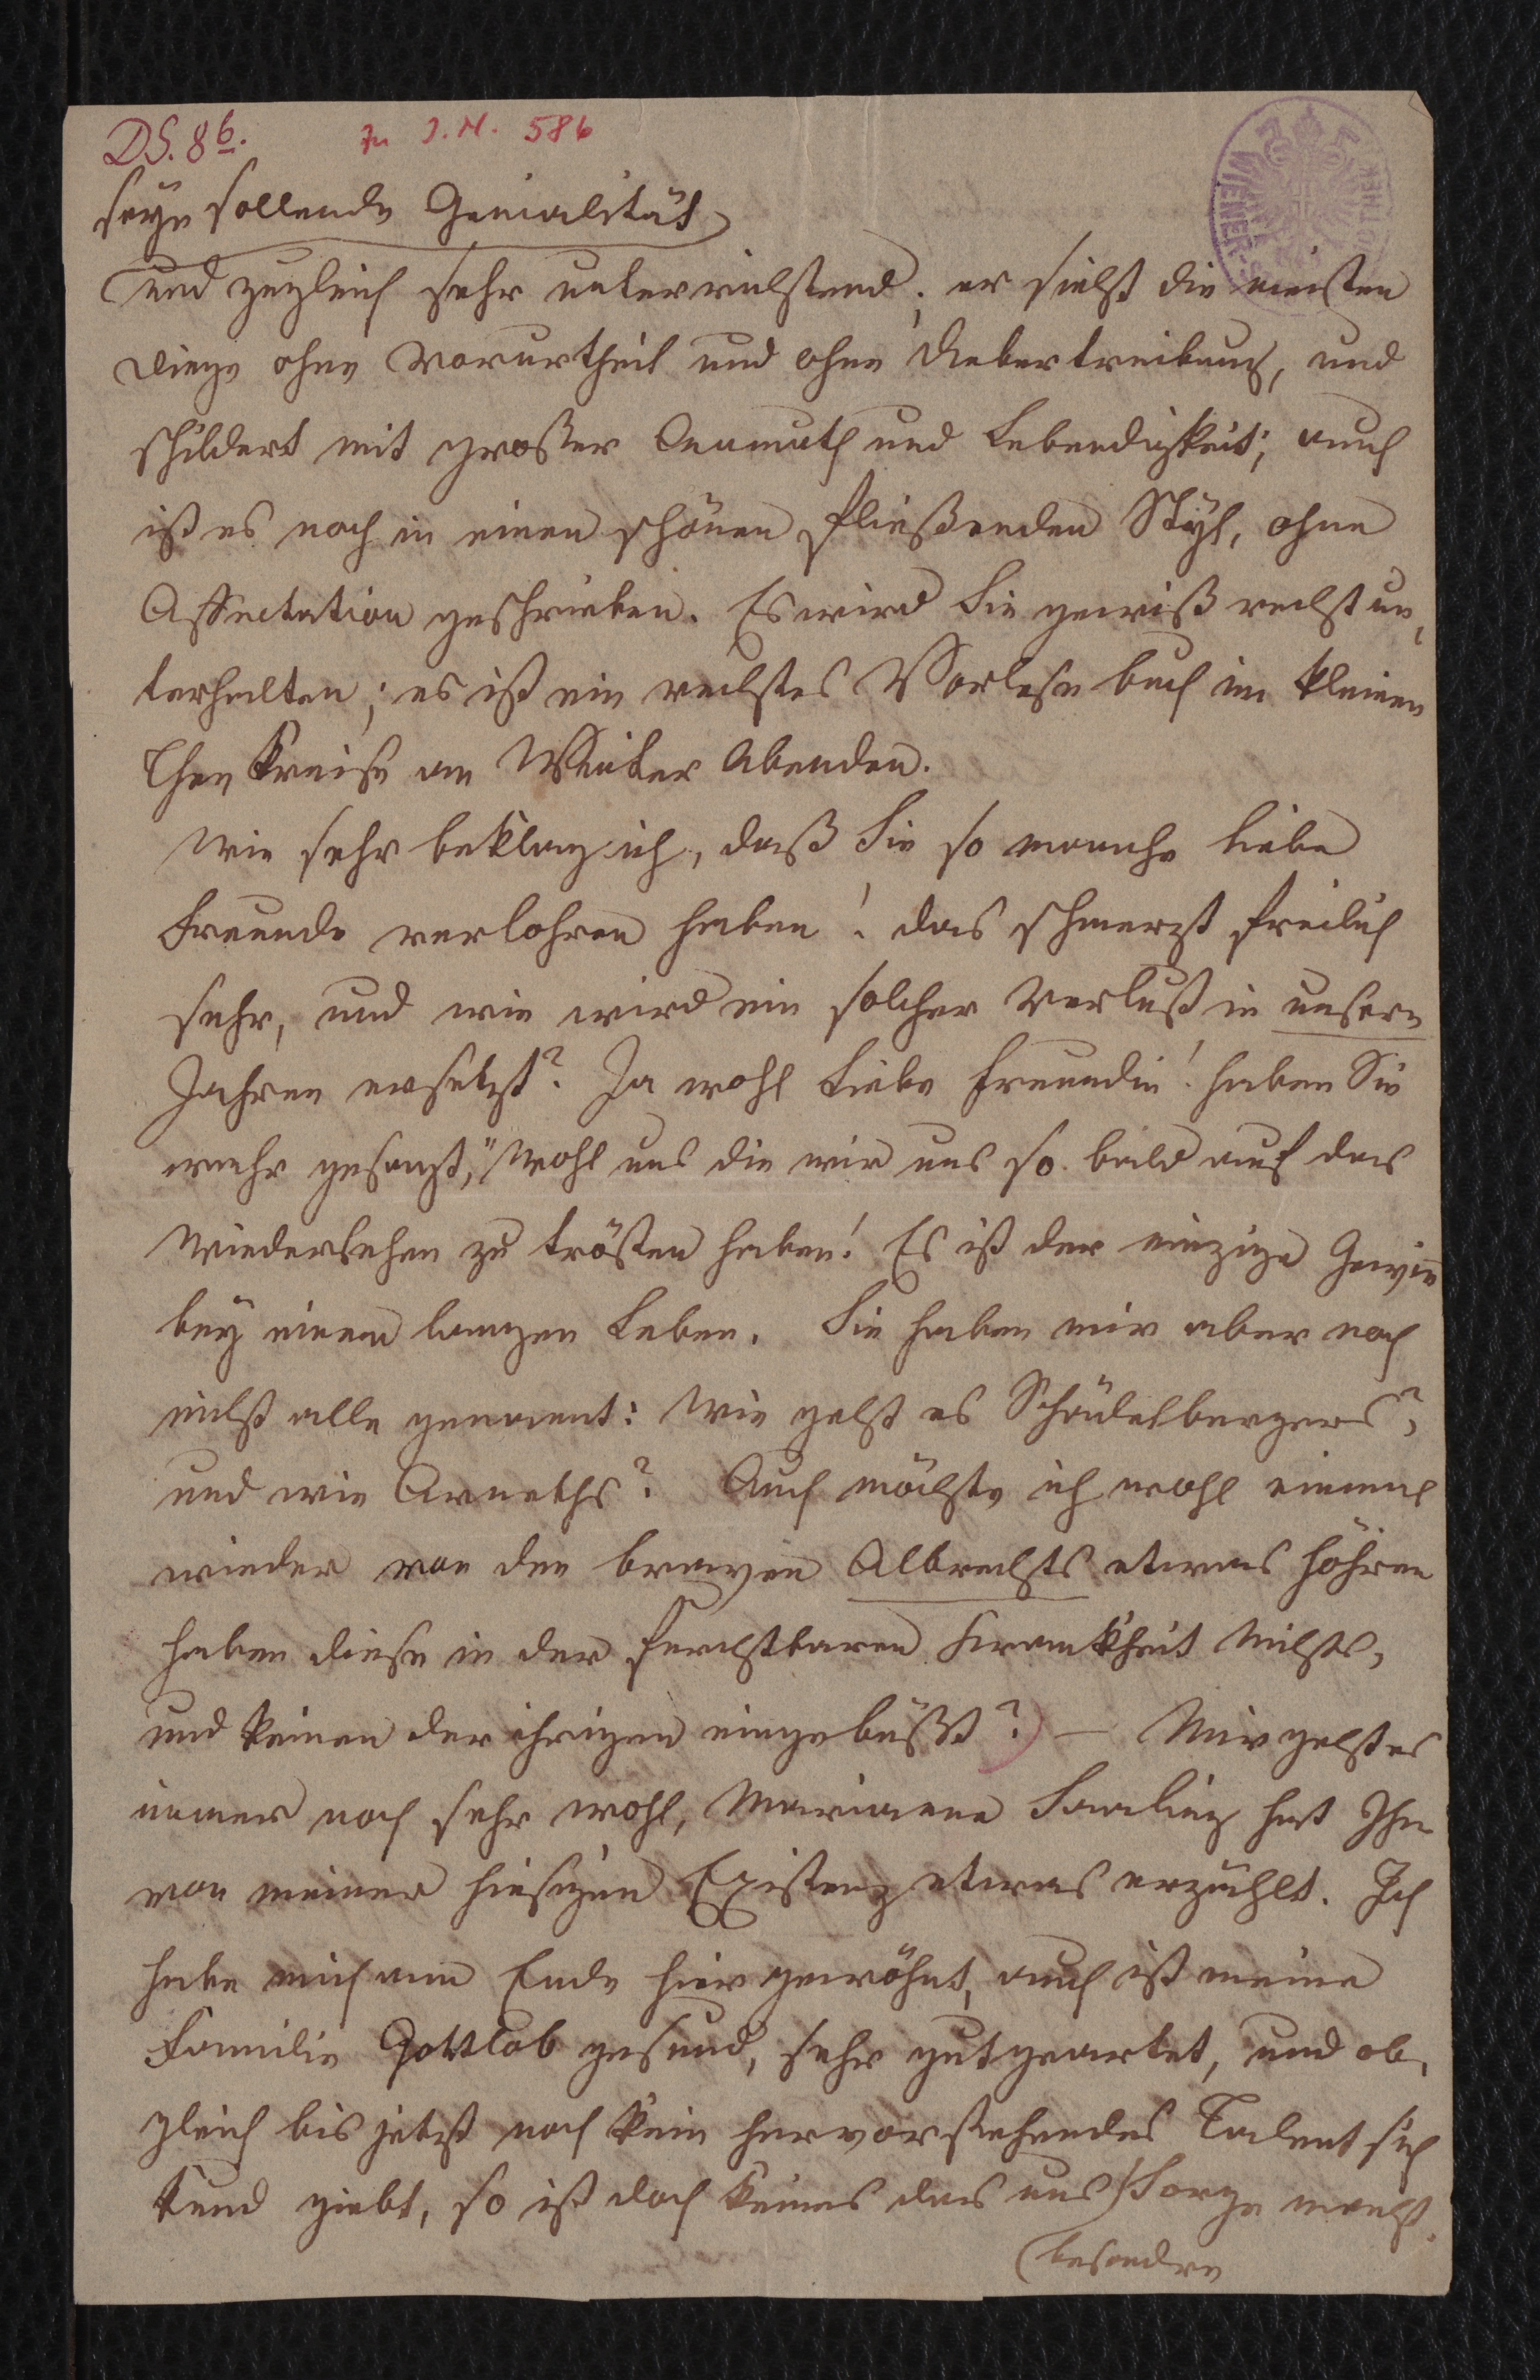 DS. 8b. zu J. N. 586
WIENER
seyn sollende Genialität
und zugleich sehr unterrichtend; er sieht die meisten
Dinge ohne Vorurtheil und ohne Uebertreibung, und
schildert mit großer Anmuth und Lebendigkeit; auch
ist es noch in einen schönen fließenden Styl, ohne
Affectation geschrieben. Es wird Sie gewiß recht un,
terhalten; es ist ein rechtes Vorlese buch im kleinen
Thee Kreise an Winter Abenden.
Wie sehr beklag ich, daß Sie so manche liebe
Freunde verlohren haben! das schmerzt freilich
sehr, und wie wird ein solcher Verlust in unsern
Jahren ersetzt? Ja wohl liebe Freundin! haben Sie
wahr gesagt, "Wohl uns die wir uns so bald auf das
Wiedersehen zu trösten haben! Es ist der einzige Gewin̅
bey einem langen Leben. Sie haben mir aber noch
nicht alle genannt: wie geht es Schödelbergers?
und wie Arneths? Auch möchte ich wohl einmal
wieder von den braven Albrechts etwas höhren
haben diese in der furchtbaren Krankheit Nichts,
und keinen der ihrigen eingebüßt? — Mir geht es
immer noch sehr wohl, Marianne Saaling hat Ihn
von meiner hiesigen Existenz etwas erzählt. Ich
habe mich am Ende hier gewöhnt, auch ist meine
Familie Gottlob gesund, sehr gutgeartet, und ob,
gleich bis jetzt noch kein hervorstehendes Talent sich
kund giebt, so ist doch keines das uns Sorge macht.
(besondre